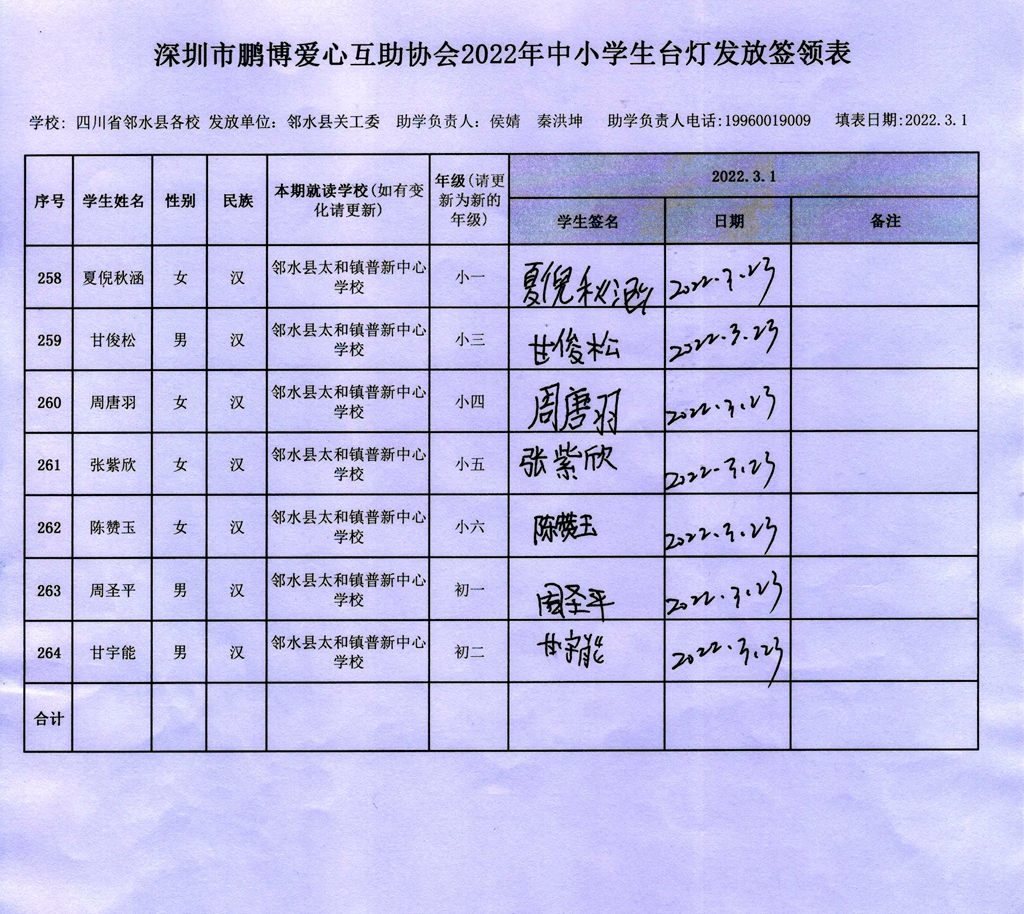 深圳市鹏博爱心互助协会2022年中小学生台灯发放签领表
学校: 四川省邻水县各校 发放单位: 邻水县关工委 助学负责人: 侯婧 秦洪坤 助学负责人电话:19960019009 填表日期:2022.3.1
序号 学生姓名 性别 民族 本期就读学校(如有变化请更新) 年级(请更新为新的年级) 2022.3.1
学生签名 日期 备注
258 夏倪秋涵 女 汉 邻水县太和镇普新中心学校 小一 夏倪秋涵 2022.3.23
259 甘俊松 男 汉 邻水县太和镇普新中心学校 小三 甘俊松 2022.3.23
260 周唐羽 女 汉 邻水县太和镇普新中心学校 小四 周唐羽 2022.3.23
261 张紫欣 女 汉 邻水县太和镇普新中心学校 小五 张紫欣 2022.3.23
262 陈赞玉 女 汉 邻水县太和镇普新中心学校 小六 陈赞玉 2022.3.23
263 周圣平 男 汉 邻水县太和镇普新中心学校 初一 周圣平 2022.3.23
264 甘宇能 男 汉 邻水县太和镇普新中心学校 初二 甘宇能 2022.3.23
合计